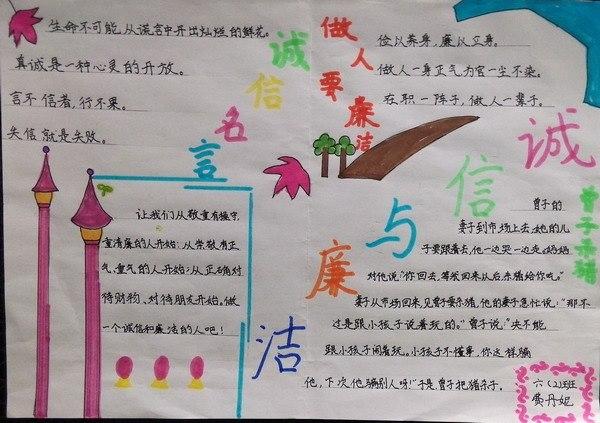 生命不可能从谎言中开出灿烂的鲜花。
真诚是一种心灵的开放。
言不信者,行不果。
失信就是失败。
诚信名言
做人要廉洁
俭以养身,廉以立身。
做人一身正气为官一尘不染。
在职一阵子,做人一辈子。
诚信与廉洁
让我们从敬重有操守,
重清廉的人开始;从学敬有正
气,重气的人开始;从正确对
待财物,对待朋友开始。做
一个诚信和廉洁的人吧!
曾子杀猪
曾子的
妻子到市场上去,她的儿
子要跟着去,他一边哭一边走。妈妈
对他说“你回去,等我回来以后,杀猪给你吃。”
妻子从市场回来,见曾子要杀猪,他的妻子急忙说:“那不
过是跟小孩子说着玩的。”曾子说:“决不能
跟小孩子闹着玩。小孩子不懂事,你这样骗
他,下次他骗别人呀!”于是曾子把猪杀了。
六(2)班
黄丹妮